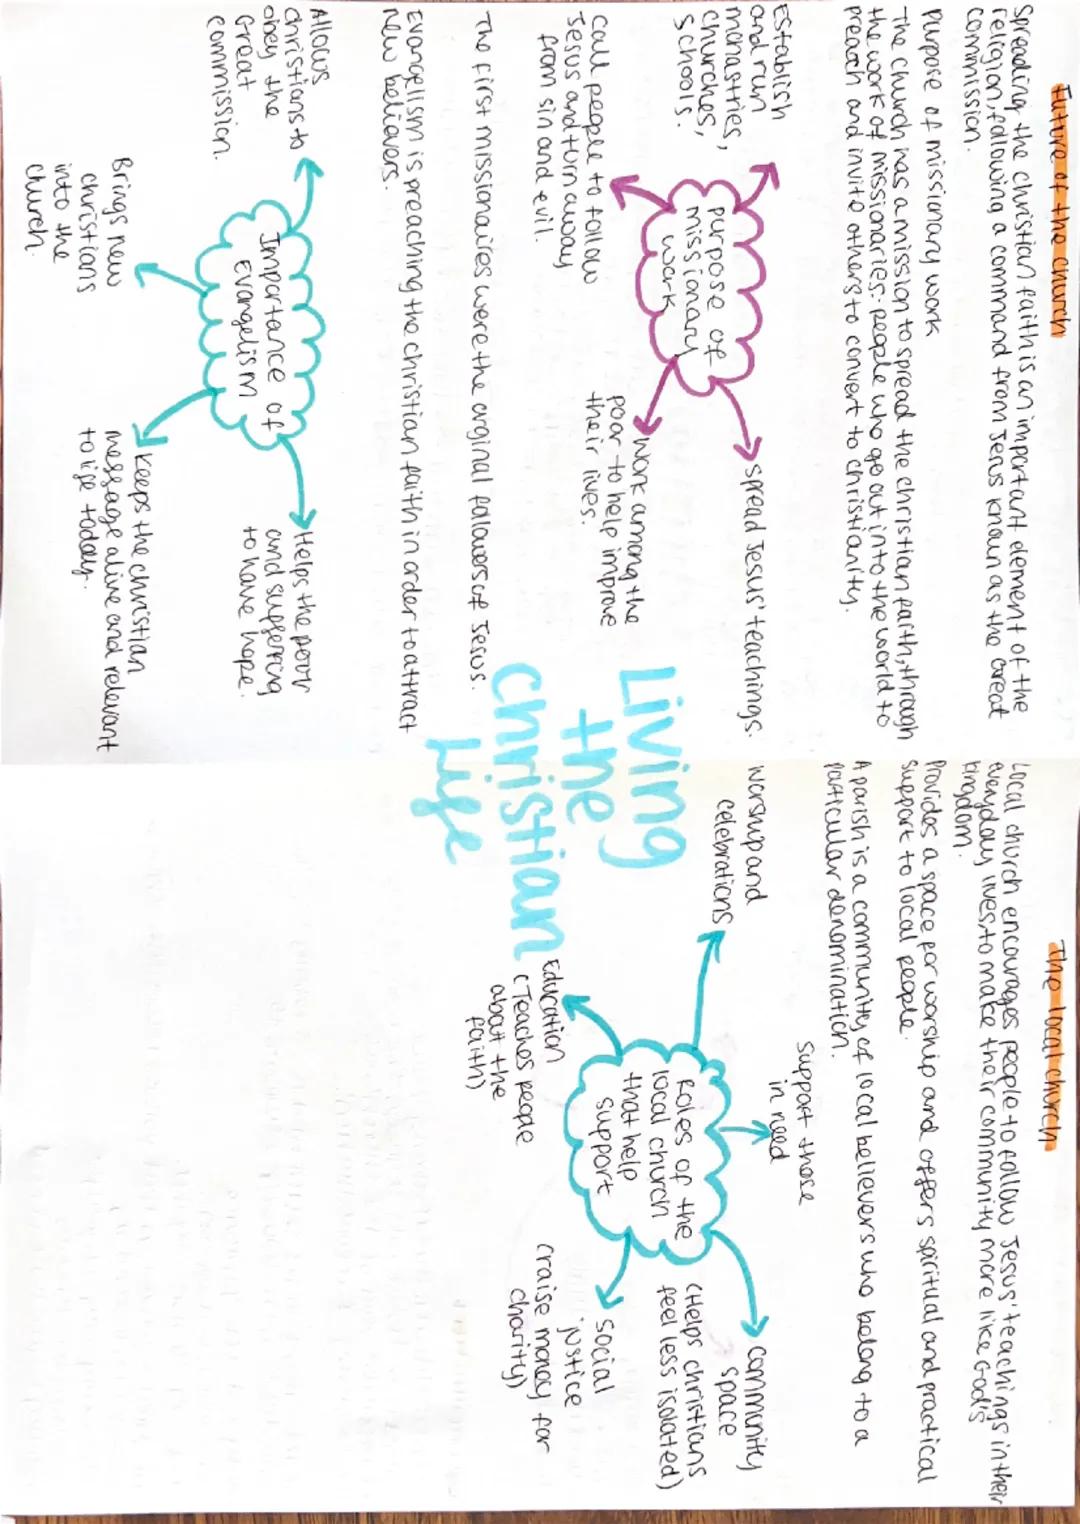 Future of the church
Spreading the christian faith is an important element of the
religion, following a command from Jesus known as the Great
commission.
Purpose of missionary work
The church has a mission to spread the christian faith, through
the work of missionaries: people who go out into the world to
preach and invite others to convert to christianity.
Establish
and run
monastries,
churches,
schools.
spread Jesus' teachings.
purpose of
missionary
work
Call people to follow
Jesus and turn away
from sin and evil.
Work among the
poor to help improve
their lives.
The first missionairies were the orginal followers of Jesus.
Evangelism is preaching the christian faith in order to attract
new believers.
Allows
christians to
obey the
Great
commission.
Importance of
Evangelism
Helps the poor
and suffering
to have hope.
Brings new
christians
into the
church.
Keeps the christian
message alive and relevant
to life today.
Living
the
christian
Life
The local church
Local church encourages people to follow Jesus' teachings in their
everyday lives, to make their community more like God's
kingdom.
Provides a space for worship and offers spiritual and practical
support to local people.
A parish is a community of local believers who belong to a
particular denomination.
Worship and
celebrations
Support those
in need
Community
space
(Helps christians
feel less isolated)
Roles of the
local church
that help
support
Education
(Teaches people
about the
faith)
Social
justice
(raise money for
charity)